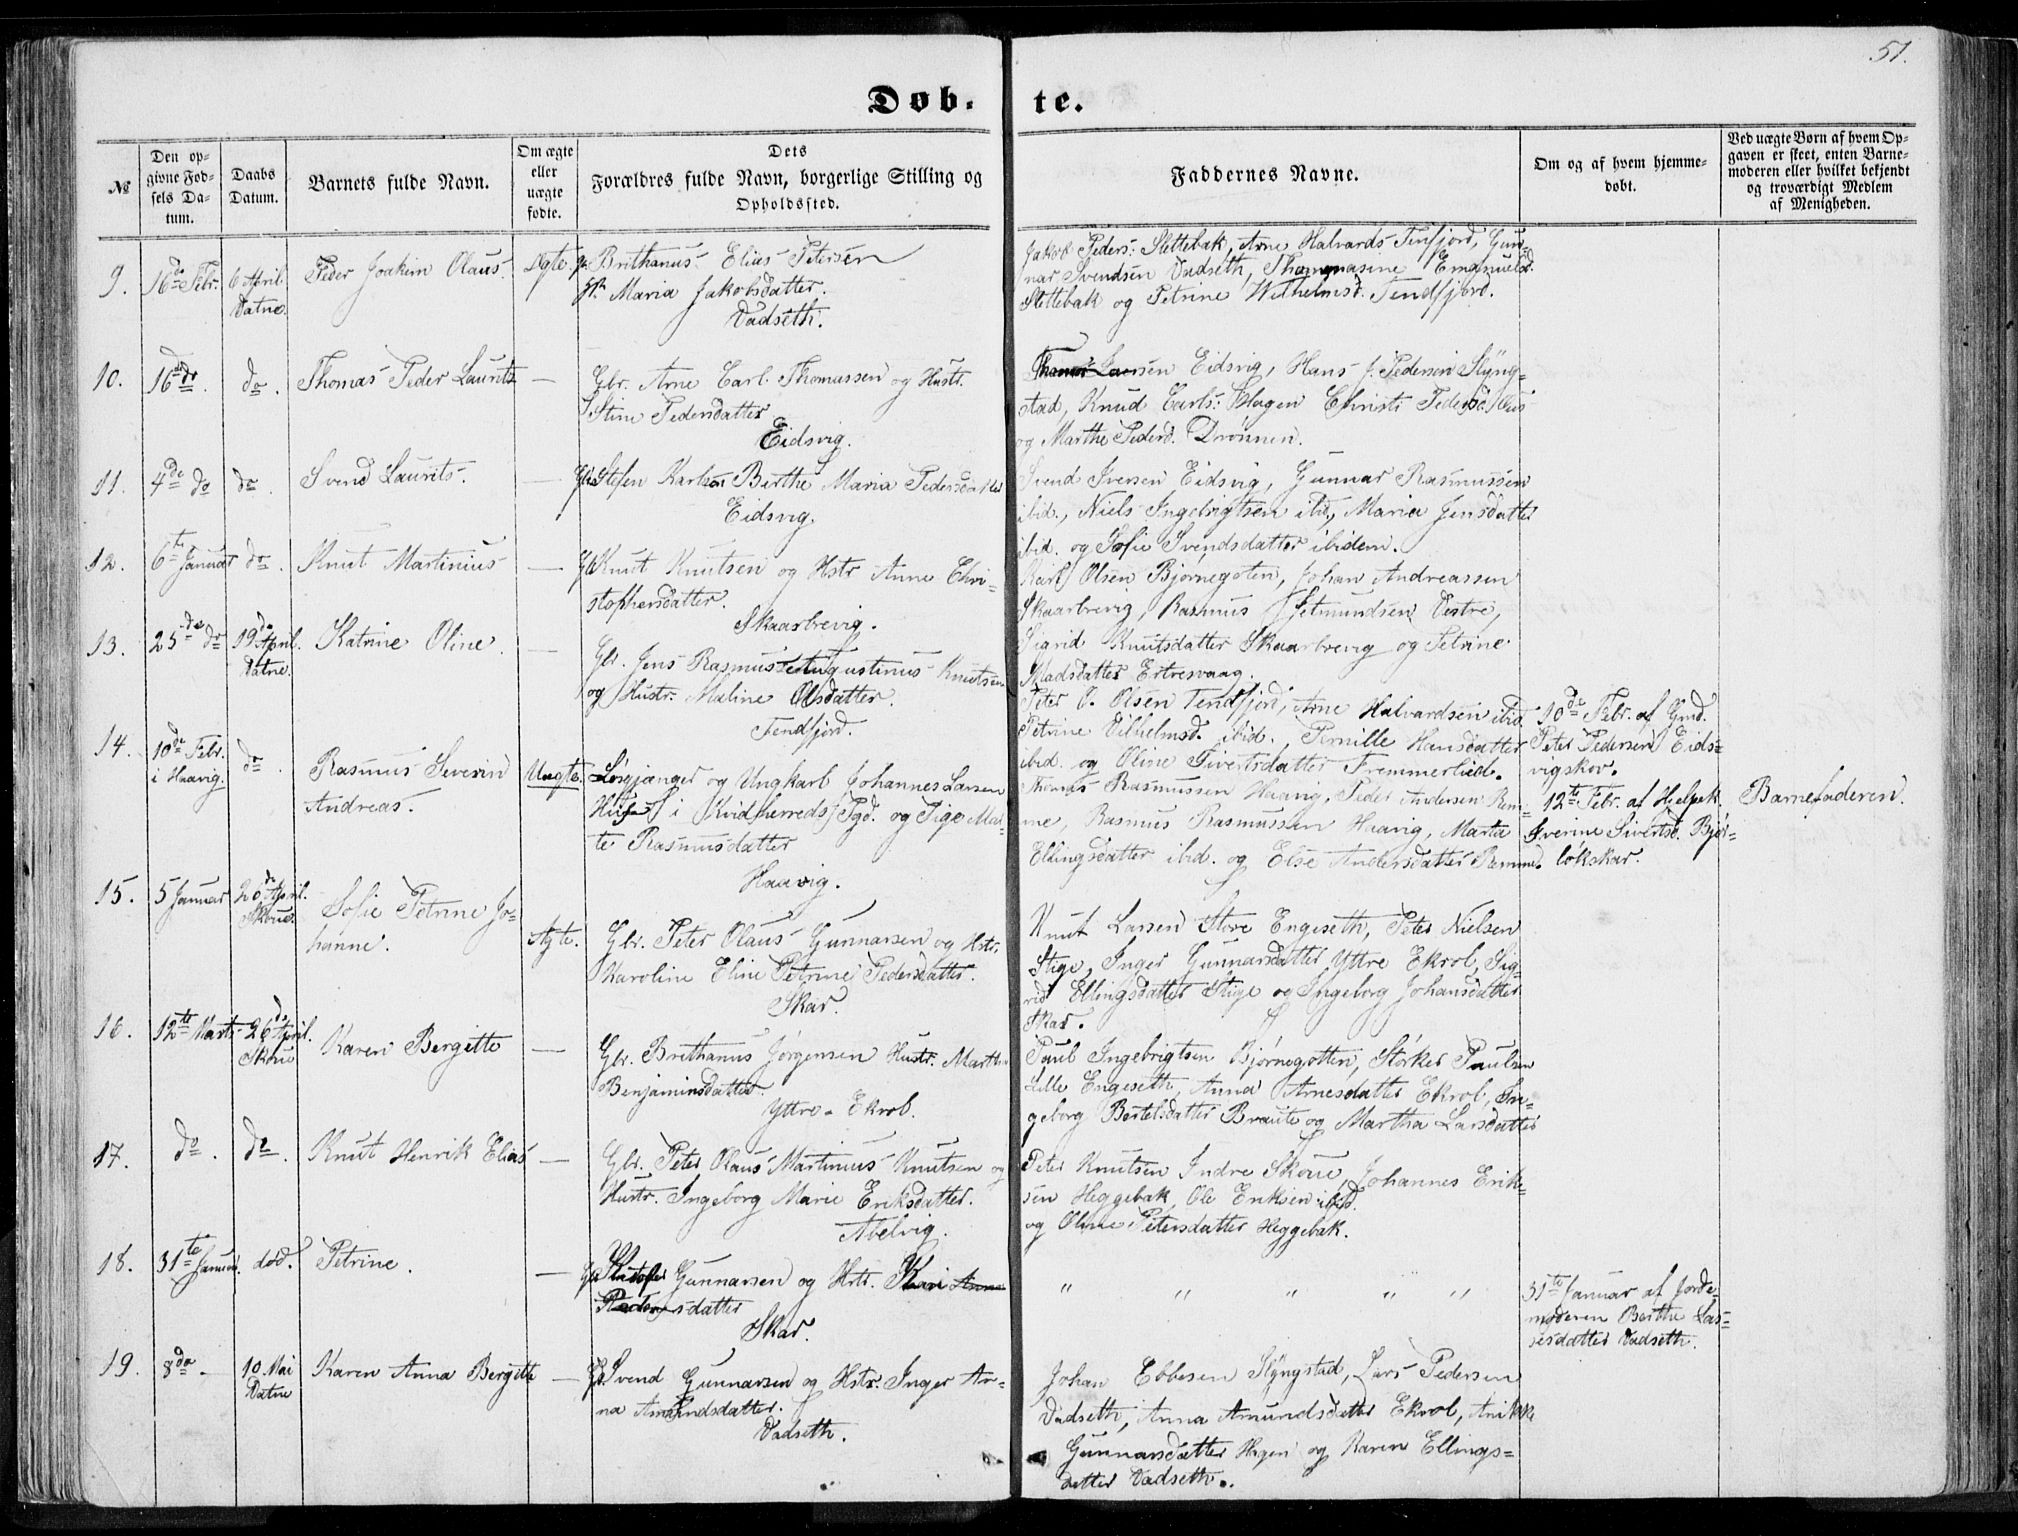 51.
Døb-
te.
№
Den op-
givne Fød-
sels Da-
tum.
Daabs
Datum.
Barnets fulde Navn.
Om ægte
eller
uægte
fødte.
Dets
Forældres fulde Navn, borgerlige Stilling og
Opholdssted.
Faddernes Navne.
Om og af hvem hjemme-
døbt.
Ved uægte Børn af hvem Op-
gaven er skeet, enten Barne-
moderen eller hvilket bekjendt
og troværdigt Medlem
af Menigheden.
9. 16de Febr. 6 April Vatne. Peder Joakim Olaus. Ægte
Brithanus Elias Petersen
Maria Jakobsdatter.
Vadseth.
Jakob Peders: Slettebak, Arne Halvards Tenfjord, Gun-
nar Svendsen Vadseth, Thomasine Emanuelsd.
Slettebak og Petrine Wilhelmsd. Tendfjord.
10. 16de do. do. Thomas Peder Laurits —
Gbr. Arne Carl Thomassen og Hustr.
Stine Pedersdatter
Eidsvig.
Eidsvig, Hans J. Pedersen Slyng-
stad, Knud Carls: Hagen Christi Pedersd.
og Marthe Pedersd. Drønnen.
11. 4de do do. Svend Laurits. —
Stefen Karlsen Birthe Maria Pedersdatter
Eidsvig.
Svend Iversen Eidsvig, Gunnar Rasmussen
ibid., Niels Ingebrigtsen ibid, Maria Jensdatter
ibid. og Sofie Svendsdatter ibidem.
12. 6te Januar do. Knut Martinius —
Knut Knutsen og Hstr Anne Chri-
stophersdatter.
Skaarbrevig.
Olsen Bjørnegoten, Johan Andreassen
Skaarbrevig, Rasmus Vestre,
Sigrid Knutsdatter Skaarbrevig og Petrine
Madsdatter Ertresvaag.
13. 25de do 19de April. Vatne. Katrine Oline. —
Gbr. Jens Rasmus Augustinus Knutsen
og Hustr: Maline Olsdatter.
Tendfjord.
Peter O. Olsen Tendfjord, Arne Halvardsen ibid
Petrine Vilhelmsd. ibid., Pernille Hansdatter
ibid. og Oline Sivertsdatter Fremmerlied.
10de Febr. af Gmd.
Peter Pedersen Eids-
vigskov.
14. 10de Febr. i Haavig. do. Rasmus Severin
Andreas.
Uægte.
Løsgjænger og Ungkarl Johannes Larsen
i Kvidherreds Pgd. og Pige Mar-
te Rasmusdatter
Haavig.
Thomas Rasmussen Haavig, Peder Andersen Rem-
me, Rasmus Rasmussen Haavig, Marta
Ellingsdatter ibid. og Else Andersdatter Remme.
12te Febr. af Hjelpek.
Iverine Sivertsd. Bjør-
løkskar.
Barnefaderen.
15. 5 Januar 20de April. Skoue. Sofie Petrine Jo-
hanne. Ægte.
Gbr. Peter Olaus Gunnarsen og Hstr.
Karoline Eline Petrine Pedersdatter.
Skar.
Knut Larsen Store Engeseth, Peter Nielsen
Stige, Inger Gunnarsdatter Yttre Ekrol, Sig-
rid Ellingsdatter Stige og Ingeborg Johansdatter
Skar.
16. 12te Marts 26de April. Skoue Karen Bergitte —
Gbr. Brithanus Jørgensen Hustr. Marthe
Benjaminsdatter.
Yttre-Ekrol.
Paul Ingebrigtsen Bjørnegotten, Størker Paulsen
Lille Engeseth, Anna Arnesdatter Ekrol, In-
geborg Bertelsdatter Braute og Martha Larsdatter
17. do. do. Knut Henrik Elias —
Gbr. Peter Olaus Martinius Knutsen og
Hustr. Ingeborg Marie Eriksdatter.
Abelvig.
Peter Knutsen Indre Skoue, Johannes Erik-
sen Heggebak, Ole Eriksen ibid.
og Oline Petersdatter Heggebak.
18. 31te Januar. død. Petrine. —
Gunnarsen og Hstr.
Pedersdatter
Skar.
" " " " "
31te Januar af Jorde-
moderen Berthe Las-
sesdatter Vadseth.
19. 8de - 10 Mai Vatne Karen Anna Bergitte —
Svend Gunnarsen og Hstr. Inger An-
na Amundsdatter.
Vadseth.
Johan Ebbesen Slyngstad, Lars Pedersen
Vadseth, Anna Amundsdatter Ekrol, Anikke
Gunnarsdatter Hagen og Karen Ellings-
datter Vadseth.